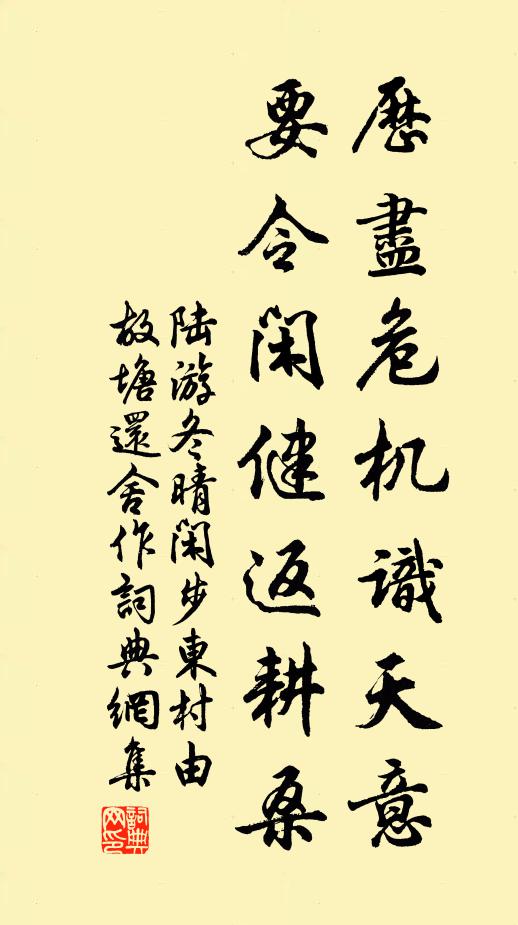 歷盡危机識天意
要令閑健返耕桑
陆游冬晴閑步東村由
故塘還舍作詞典網集
詞典網印